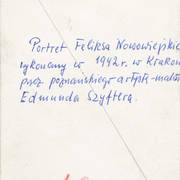 Portret Feliksa Nowowiejskie
wykonany w 1942 r. w Krakow
przez poznańskiego artystę-mala
Edmunda Szyftera.